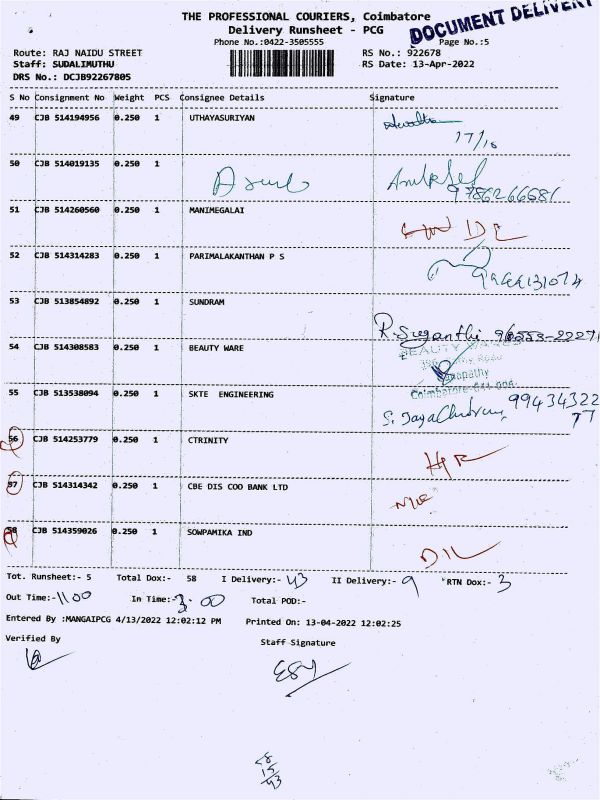 THE PROFESSIONAL COURIERS, Coimbatore
DOCUMENT DELIVERY
Delivery Runsheet - PCG
Phone No.:0422-3505555
Page No.:5
Route: RAJ NAIDU STREET
RS No.: 922678
Staff: SUDALIMUTHU
RS Date: 13-Apr-2022
DRS No.: DCJB92267805
S No Consignment No Weight PCS Consignee Details Signature
49 CJB 514194956 0.250 1 UTHAYASURIYAN
17/10
50 CJB 514019135 0.250 1
9786266681
51 CJB 514260560 0.250 1 MANIMEGALAI
52 CJB 514314283 0.250 1 PARIMALAKANTHAN P S
53 CJB 513854892 0.250 1 SUNDRAM
R. Suganthi
54 CJB 514308583 0.250 1 BEAUTY WARE
BEAUTY
Coimbatore-641 006
55 CJB 513538094 0.250 1 SKTE ENGINEERING
99434322
77
56 CJB 514253779 0.250 1 CTRINITY
57 CJB 514314342 0.250 1 CBE DIS COO BANK LTD
58 CJB 514359026 0.250 1 SOWPAMIKA IND
Tot. Runsheet:- 5 Total Dox:- 58 I Delivery:- 43 II Delivery:- 9 RTN Dox:- 3
Out Time:- 11 00 In Time:- 3.00 Total POD:-
Entered By :MANGAIPCG 4/13/2022 12:02:12 PM Printed On: 13-04-2022 12:02:25
Verified By Staff Signature
15
43